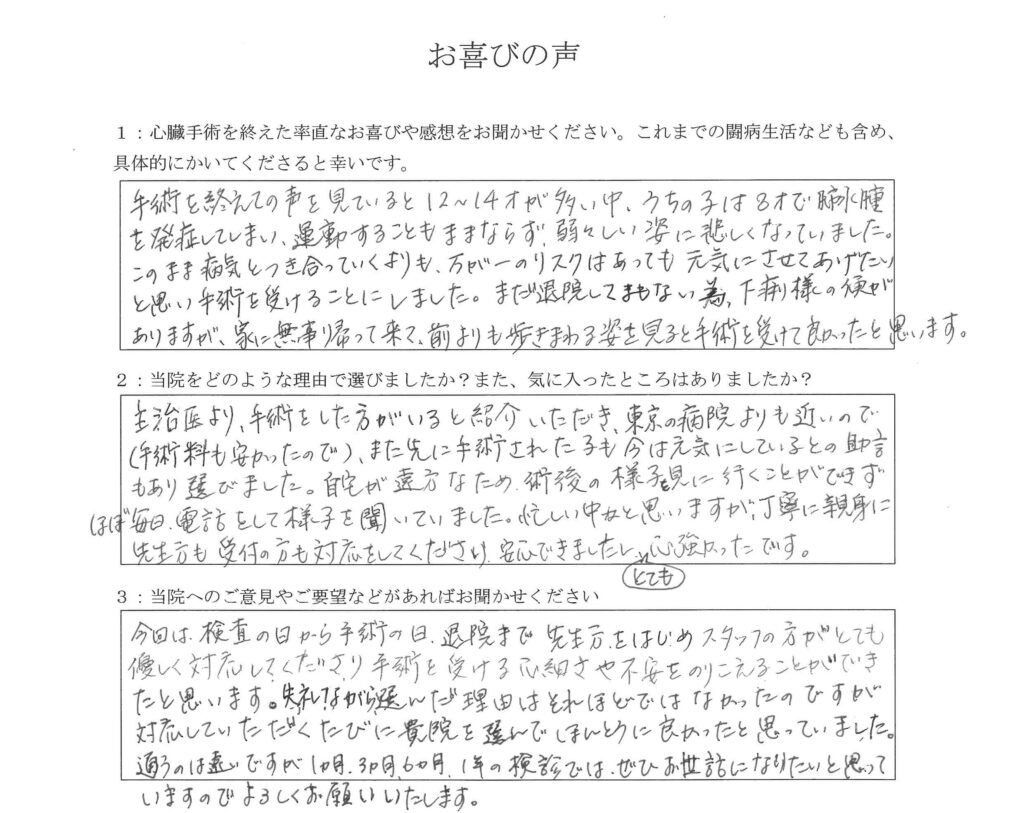 お喜びの声
1：心臓手術を終えた率直なお喜びや感想をお聞かせください。これまでの闘病生活なども含め、
具体的にかいてくださると幸いです。
手術を終えての声を見ていると12〜14才が多い中、うちの子は8才で肺水腫
を発症してしまい、運動することもままならず、弱々しい姿に悲しくなっていました。
このまま病気とつき合っていくよりも、万が一のリスクはあっても元気にさせてあげたい
と思い手術を受けることにしました。まだ退院してまもない為、下痢様の便が
ありますが、家に無事帰って来て、前よりも歩きまわる姿を見ると手術を受けて良かったと思います。
2：当院をどのような理由で選びましたか？また、気に入ったところはありましたか？
主治医より、手術をした方がいると紹介いただき、東京の病院よりも近いので
(手術料も安かったので)、また先に手術された子も今は元気にしているとの助言
もあり選びました。自宅が遠方なため、術後の様子を見に行くことができず
ほぼ毎日、電話をして様子を聞いていました。忙しい中かと思いますが、丁寧に親身に
先生方も受付の方も対応をしてくださり、安心できましたし、とても心強かったです。
3：当院へのご意見やご要望などがあればお聞かせください
今回は、検査の日から手術の日、退院まで先生方をはじめスタッフの方がとても
優しく対応してくださり手術を受ける心細さや不安をのりこえることができ
たと思います。失礼ながら選んだ理由はそれほどではなかったのですが
対応していただくたびに貴院を選んでほんとうに良かったと思っていました。
通うのは遠いですが1ヶ月、3ヶ月、6ヶ月、1年の検診では、ぜひお世話になりたいと思って
いますのでよろしくお願いいたします。